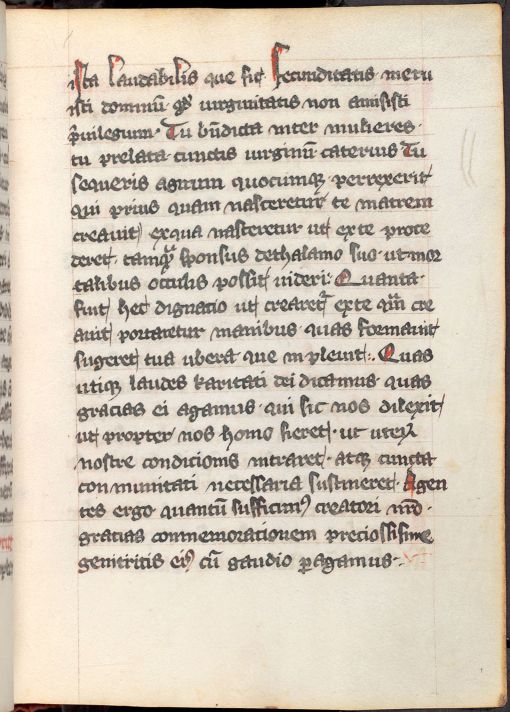 ista laudabilis que sic fecunditatis meru
isti dominū qd' uirginitatis non amisisti
p̄uilegium· Tu bn̄dicta inter mulieres·
tu prelata cunctis uirginū cateruis Tu
sequeris agnum quocumqꝫ perrexerit
qui prius quam nasceretur te matrem
creauit ex qua nasceretur ut ex te proce
deret· tamqᵃ sponsus de thalamo suo· ut mor
talibus oculis possit uideri· Quanta·
fuit hec dignatio ut crearetʳ ex te qm̄ cre
auit portaretur manibus quas formauit
sugeret tua ubera que impleuit· Quas
utiqꝫ laudes karitati dei dicamus· quas
gracias ei agamus· qui sic nos dilexit
ut propter nos homo fieret· ut uterū
nostre condicionis intraret· atqꝫ cuncta
conmunitati necessaria sustineret· Agen
tes ergo· quantū sufficimꝰ creatori nr̄o·
gratias conmemorationem preciosissime
genitricis eiꝰ cū gaudio ꝑagamus·